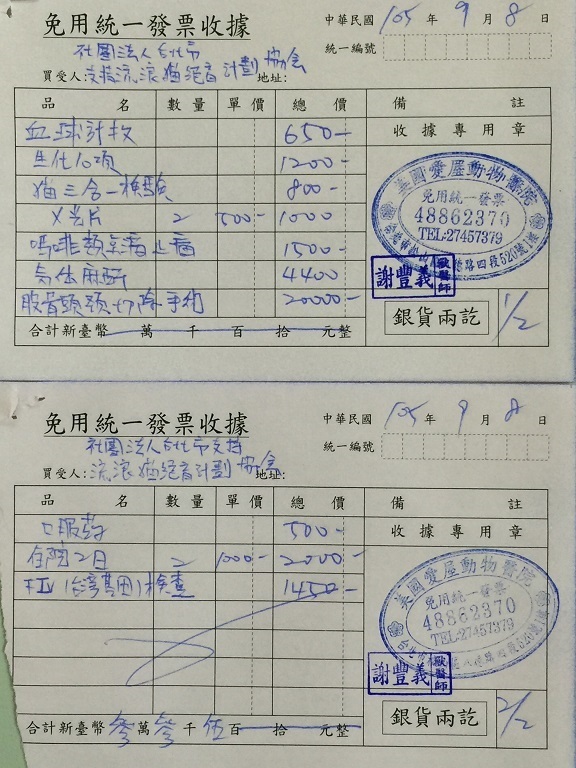 免用統一發票收據
中華民國 105 年 9 月 8 日
統一編號
社團法人台北市
買受人:支持流浪貓絕育計劃協會 地址:
品名 數量 單價 總價 備註
血球計數 650-
收據專用章
生化10項 1200-
貓三合一檢驗 800-
X光片 2 500- 1000
嗎啡類 止痛 1500-
氣体麻醉 4400
股骨頭頸切除手術 20000-
美國愛屋動物醫院
免用統一發票
48862370
TEL:27457379
路四段520號1樓
謝豐義 獸醫師
合計新臺幣 萬 千 百 拾 元整
銀貨兩訖 1/2
免用統一發票收據
中華民國 105 年 9 月 8 日
統一編號
社團法人台北市支持
買受人:流浪貓絕育計劃協會 地址:
品名 數量 單價 總價 備註
口服藥 500-
收據專用章
住院2日 2 1000- 2000-
(台灣基因)檢查 1450-
美國愛屋動物醫院
免用統一發票
48862370
TEL:27457379
八德路四段520號1樓
謝豐義 獸醫師
合計新臺幣 參 萬 參 千 伍 百 拾 元整
銀貨兩訖 2/2